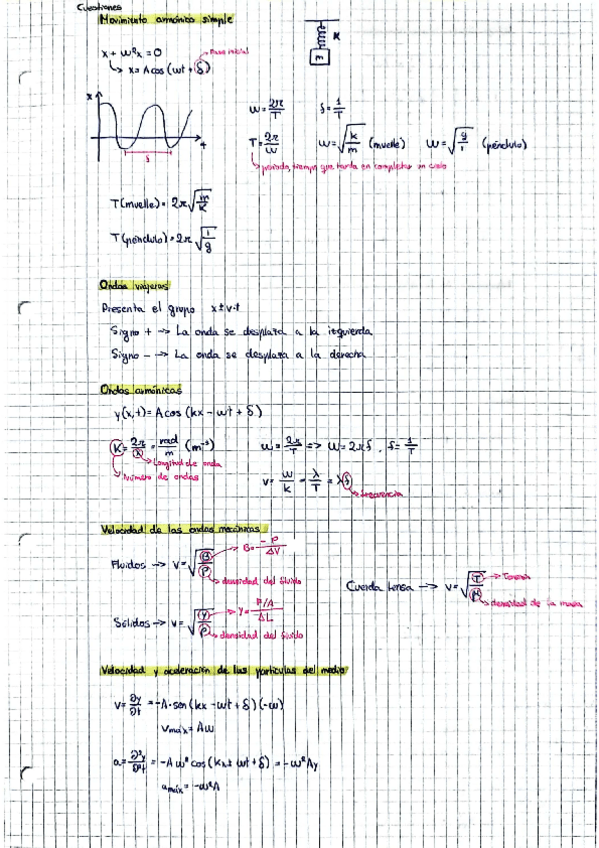 Cuestiones
Movimiento armónico simple
x + ω²x = 0
↳ x = A cos (ωt + δ) → Fase inicial
K
m
x
t
ω = 2π/T   f = 1/T
T = 2π/ω   ω = √(k/m) (muelle)   ω = √(g/l) (péndulo)
↳ periodo, tiempo que tarda en completar un ciclo
T (muelle) = 2π √(m/K)
T (péndulo) = 2π √(l/g)
Ondas viajeras
Presenta el grupo x ± v·t
Signo + → La onda se desplaza a la izquierda
Signo − → La onda se desplaza a la derecha
Ondas armónicas
y(x,t) = A cos (kx − ωt + δ)
K = 2π/λ = rad/m (m⁻¹)   ω = 2π/T => ω = 2πf , f = 1/T
Longitud de onda
Número de ondas
v = ω/k = λ/T = λf → frecuencia
Velocidad de las ondas mecánicas
Fluidos → v = √(B/ρ) → B = −P/ΔV
densidad del fluido
Cuerda tensa → v = √(T/μ) → Tensión
densidad de la masa
Sólidos → v = √(Y/ρ) → Y = F/A/ΔL
densidad del fluido
Velocidad y aceleración de las partículas del medio
v = ∂y/∂t = −A·sen (kx − ωt + δ) (−ω)
vmáx = Aω
a = ∂²y/∂²t = −Aω² cos (kx ± ωt + δ) = −ω²Ay
amáx = −ω²A